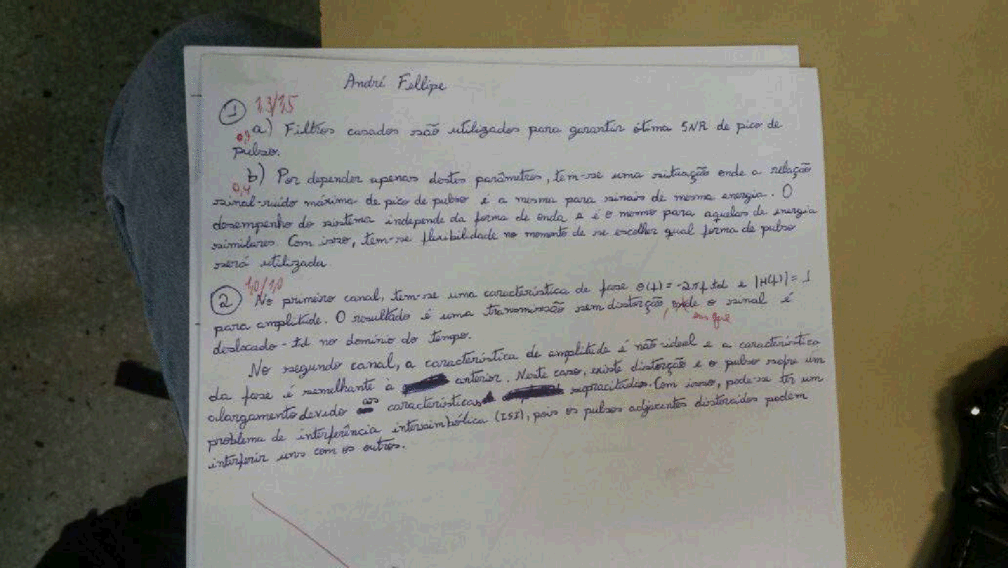 André Fellipe
1 1,3/1,5
a) Filtros casados são utilizados para garantir ótima SNR de pico de
0,9
pulso.
b) Por depender apenas destes parâmetros, tem-se uma situação onde a relação
0,4
sinal-ruído máxima de pico de pulso é a mesma para sinais de mesma energia. O
desempenho do sistema independe da forma de onda e é o mesmo para aquelas de energia
similares. Com isso, tem-se flexibilidade no momento de se escolher qual forma de pulso
será utilizada.
1,0/1,0
2 No primeiro canal, tem-se uma característica de fase θ(f) = -2πf td e |H(f)| = 1
para amplitude. O resultado é uma transmissão sem distorção, o sinal é
em que
deslocado -td no domínio do tempo.
No segundo canal, a característica de amplitude é não ideal e a característica
da fase é semelhante à anterior. Neste caso, existe distorção e o pulso sofre um
alargamento devido as características supracitadas. Com isso, pode-se ter um
problema de interferência intersimbólica (ISI), pois os pulsos adjacentes distorcidos podem
interferir uns com os outros.